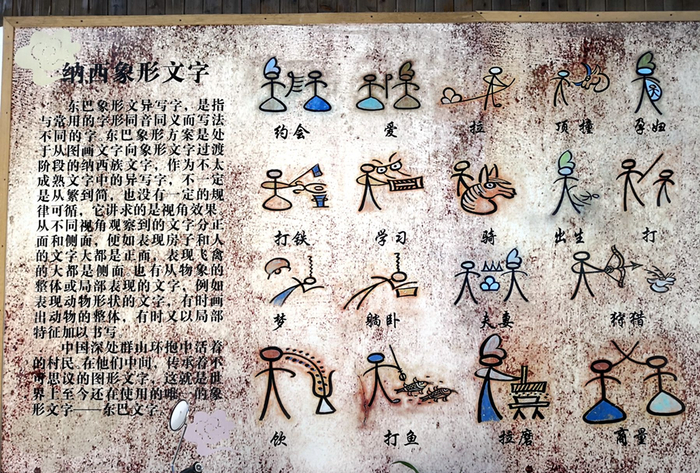 纳西象形文字
东巴象形文异写字，是指
与常用的字形同音同义而写法
不同的字.东巴象形方案是处
于从图画文字向象形文字过渡
阶段的纳西族文字，作为不太
成熟文字中的异写字，不一定
是从繁到简，也没有一定的规
律可循，它讲求的是视角效果.
从不同视角观察到的文字分正
面和侧面，便如表现房子和人
的文字大都是正面，表现飞禽
的大都是侧面.也有从物象的
整体或局部表现的文字，例如
表现动物形状的文字，有时画
出动物的整体，有时又以局部
特征加以书写.
中国深处群山环抱中活着
的村民，在他们中间，传承着不
可思议的图形文字，这就是世
界上至今还在使用的唯一的象
形文字——东巴文字.
约会 爱 拉 顶撞 孕妇
打铁 学习 骑 出生 打
梦 躺卧 夫妻 狩猎
饮 打鱼 拉磨 商量